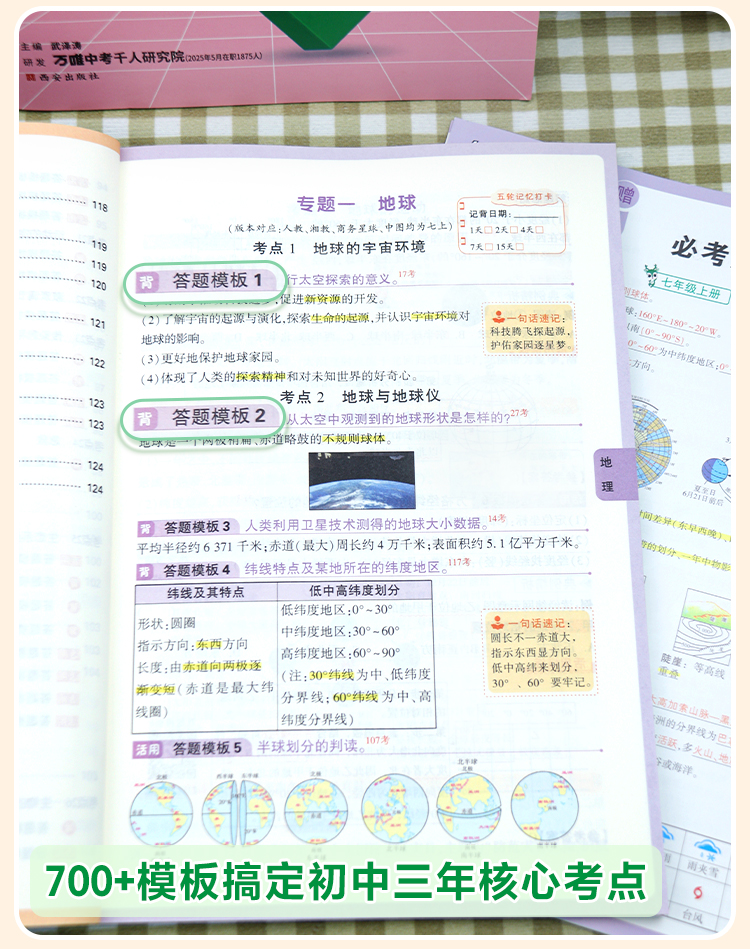 主编 武泽涛
研发 万唯中考千人研究院(2025年5月在职1875人)
西安出版社
118
119
119
120
121
122
123
123
124
124
专题一 地球
(版本对应:人教、湘教、商务星球、中图均为七上)
五轮记忆打卡
记背日期:
1天□ 2天□ 4天□
7天□ 15天□
考点 1 地球的宇宙环境
背 答题模板 1 行太空探索的意义。17考
促进新资源的开发。
(2)了解宇宙的起源与演化,探索生命的起源,并认识宇宙环境对
地球的影响。
(3)更好地保护地球家园。
(4)体现了人类的探索精神和对未知世界的好奇心。
一句话速记:
科技腾飞探起源,
护佑家园逐星梦。
考点 2 地球与地球仪
背 答题模板 2 从太空中观测到的地球形状是怎样的?27考
地球是一个两极稍扁、赤道略鼓的不规则球体。
背 答题模板 3 人类利用卫星技术测得的地球大小数据。14考
平均半径约 6 371 千米;赤道(最大)周长约 4 万千米;表面积约 5.1 亿平方千米。
背 答题模板 4 纬线特点及某地所在的纬度地区。117考
纬线及其特点
形状:圆圈
指示方向:东西方向
长度:由赤道向两极逐
渐变短(赤道是最大纬
线圈)
低中高纬度划分
低纬度地区:0°~30°
中纬度地区:30°~60°
高纬度地区:60°~90°
(注:30°纬线为中、低纬度
分界线;60°纬线为中、高
纬度分界线)
一句话速记:
圆长不一赤道大,
指示东西显方向。
低中高纬来划分,
30°、60°要牢记。
活用 答题模板 5 半球划分的判读。107考
北极
西半球 东半球
北极
北极
北半球
北极
赤道
赤道
地理
赠
必考
七年级上册
球体。
160°E-180°-20°W。
南[0°-90°S]。
0°-60°为中纬度地区;
方向。
夏至日
6月21日前后
时间差异(东早西晚)、
的划分、一年中物影
陡崖:等高线
重叠
大高加索山脉—黑
洲的分界线为巴拿
活跃,多火山、地
或海洋。
雨夹雪
台风
700+模板搞定初中三年核心考点